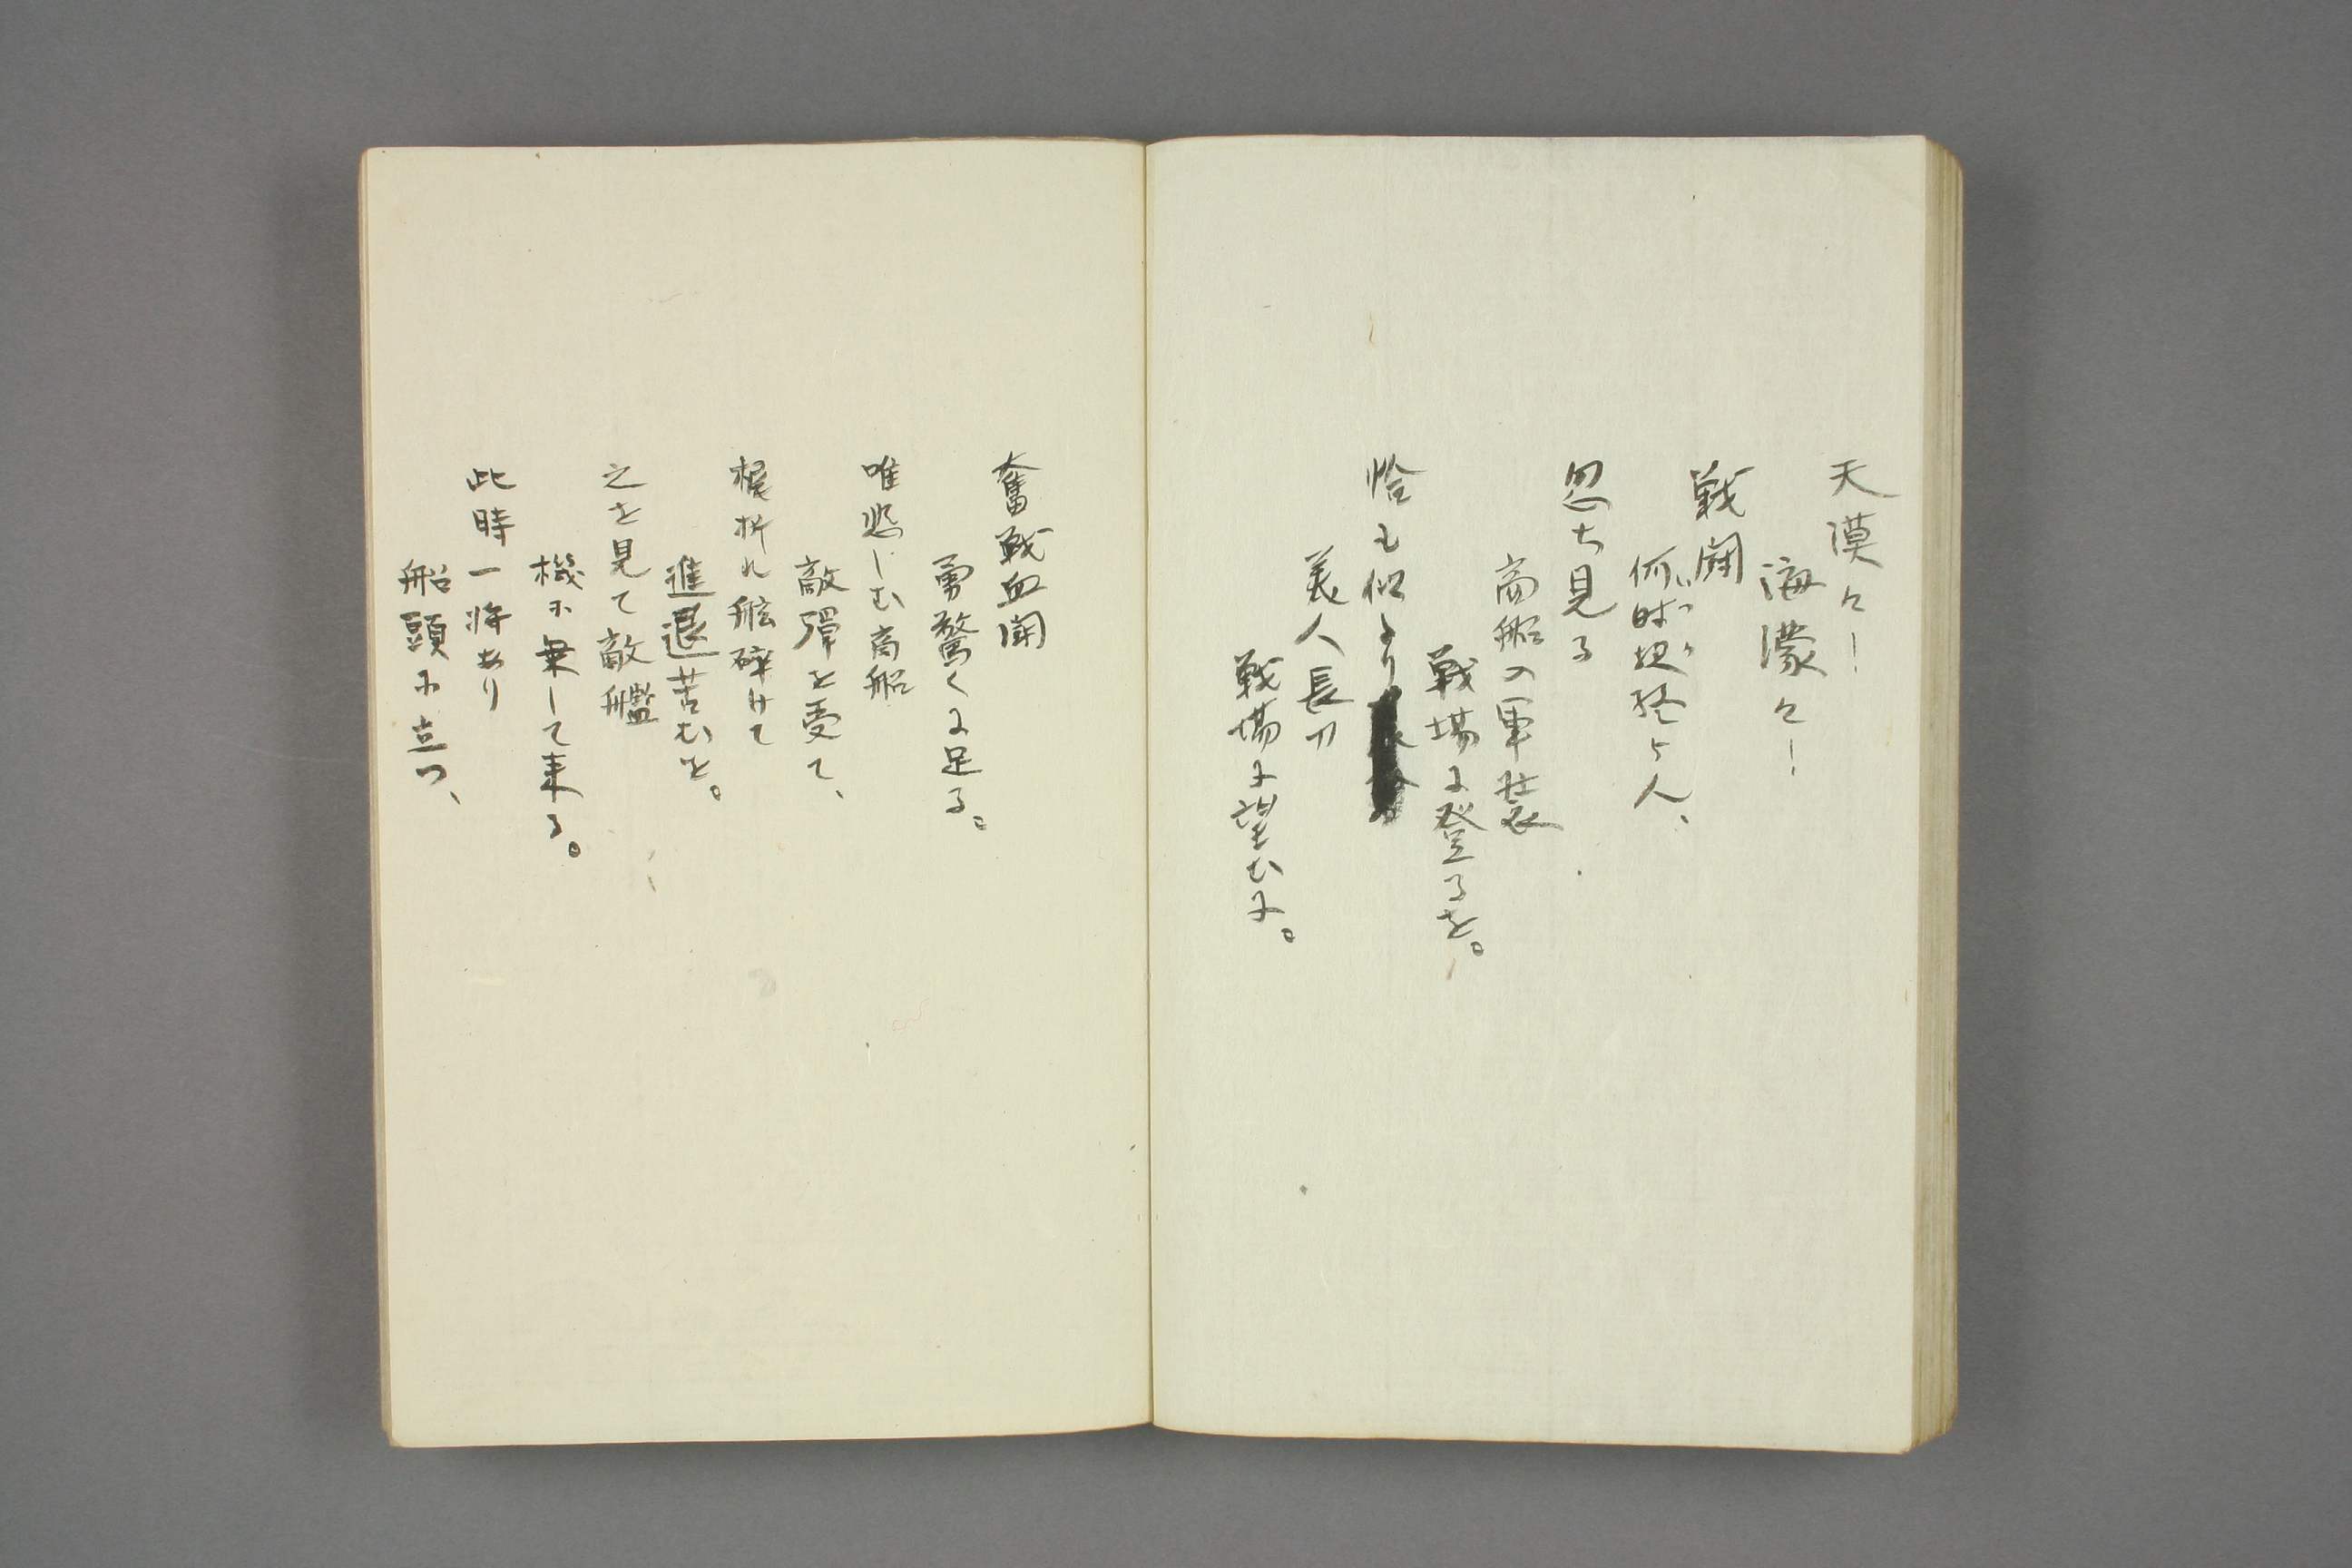 天漠々！
海濛々！
戦闘
何時迄続く人、
忽ち見る
商船の軍装
戦場に登るを。
恰も似たり
美人長刀
戦場に望むに。
奮戦血闘
勇驚くに足る。
唯悲しむ商船
敵彈を受て、
楫折れ舷碎けて
進退苦むを。
之を見て敵艦
機に乗して来る。
此時一将あり
船頭に立つ、